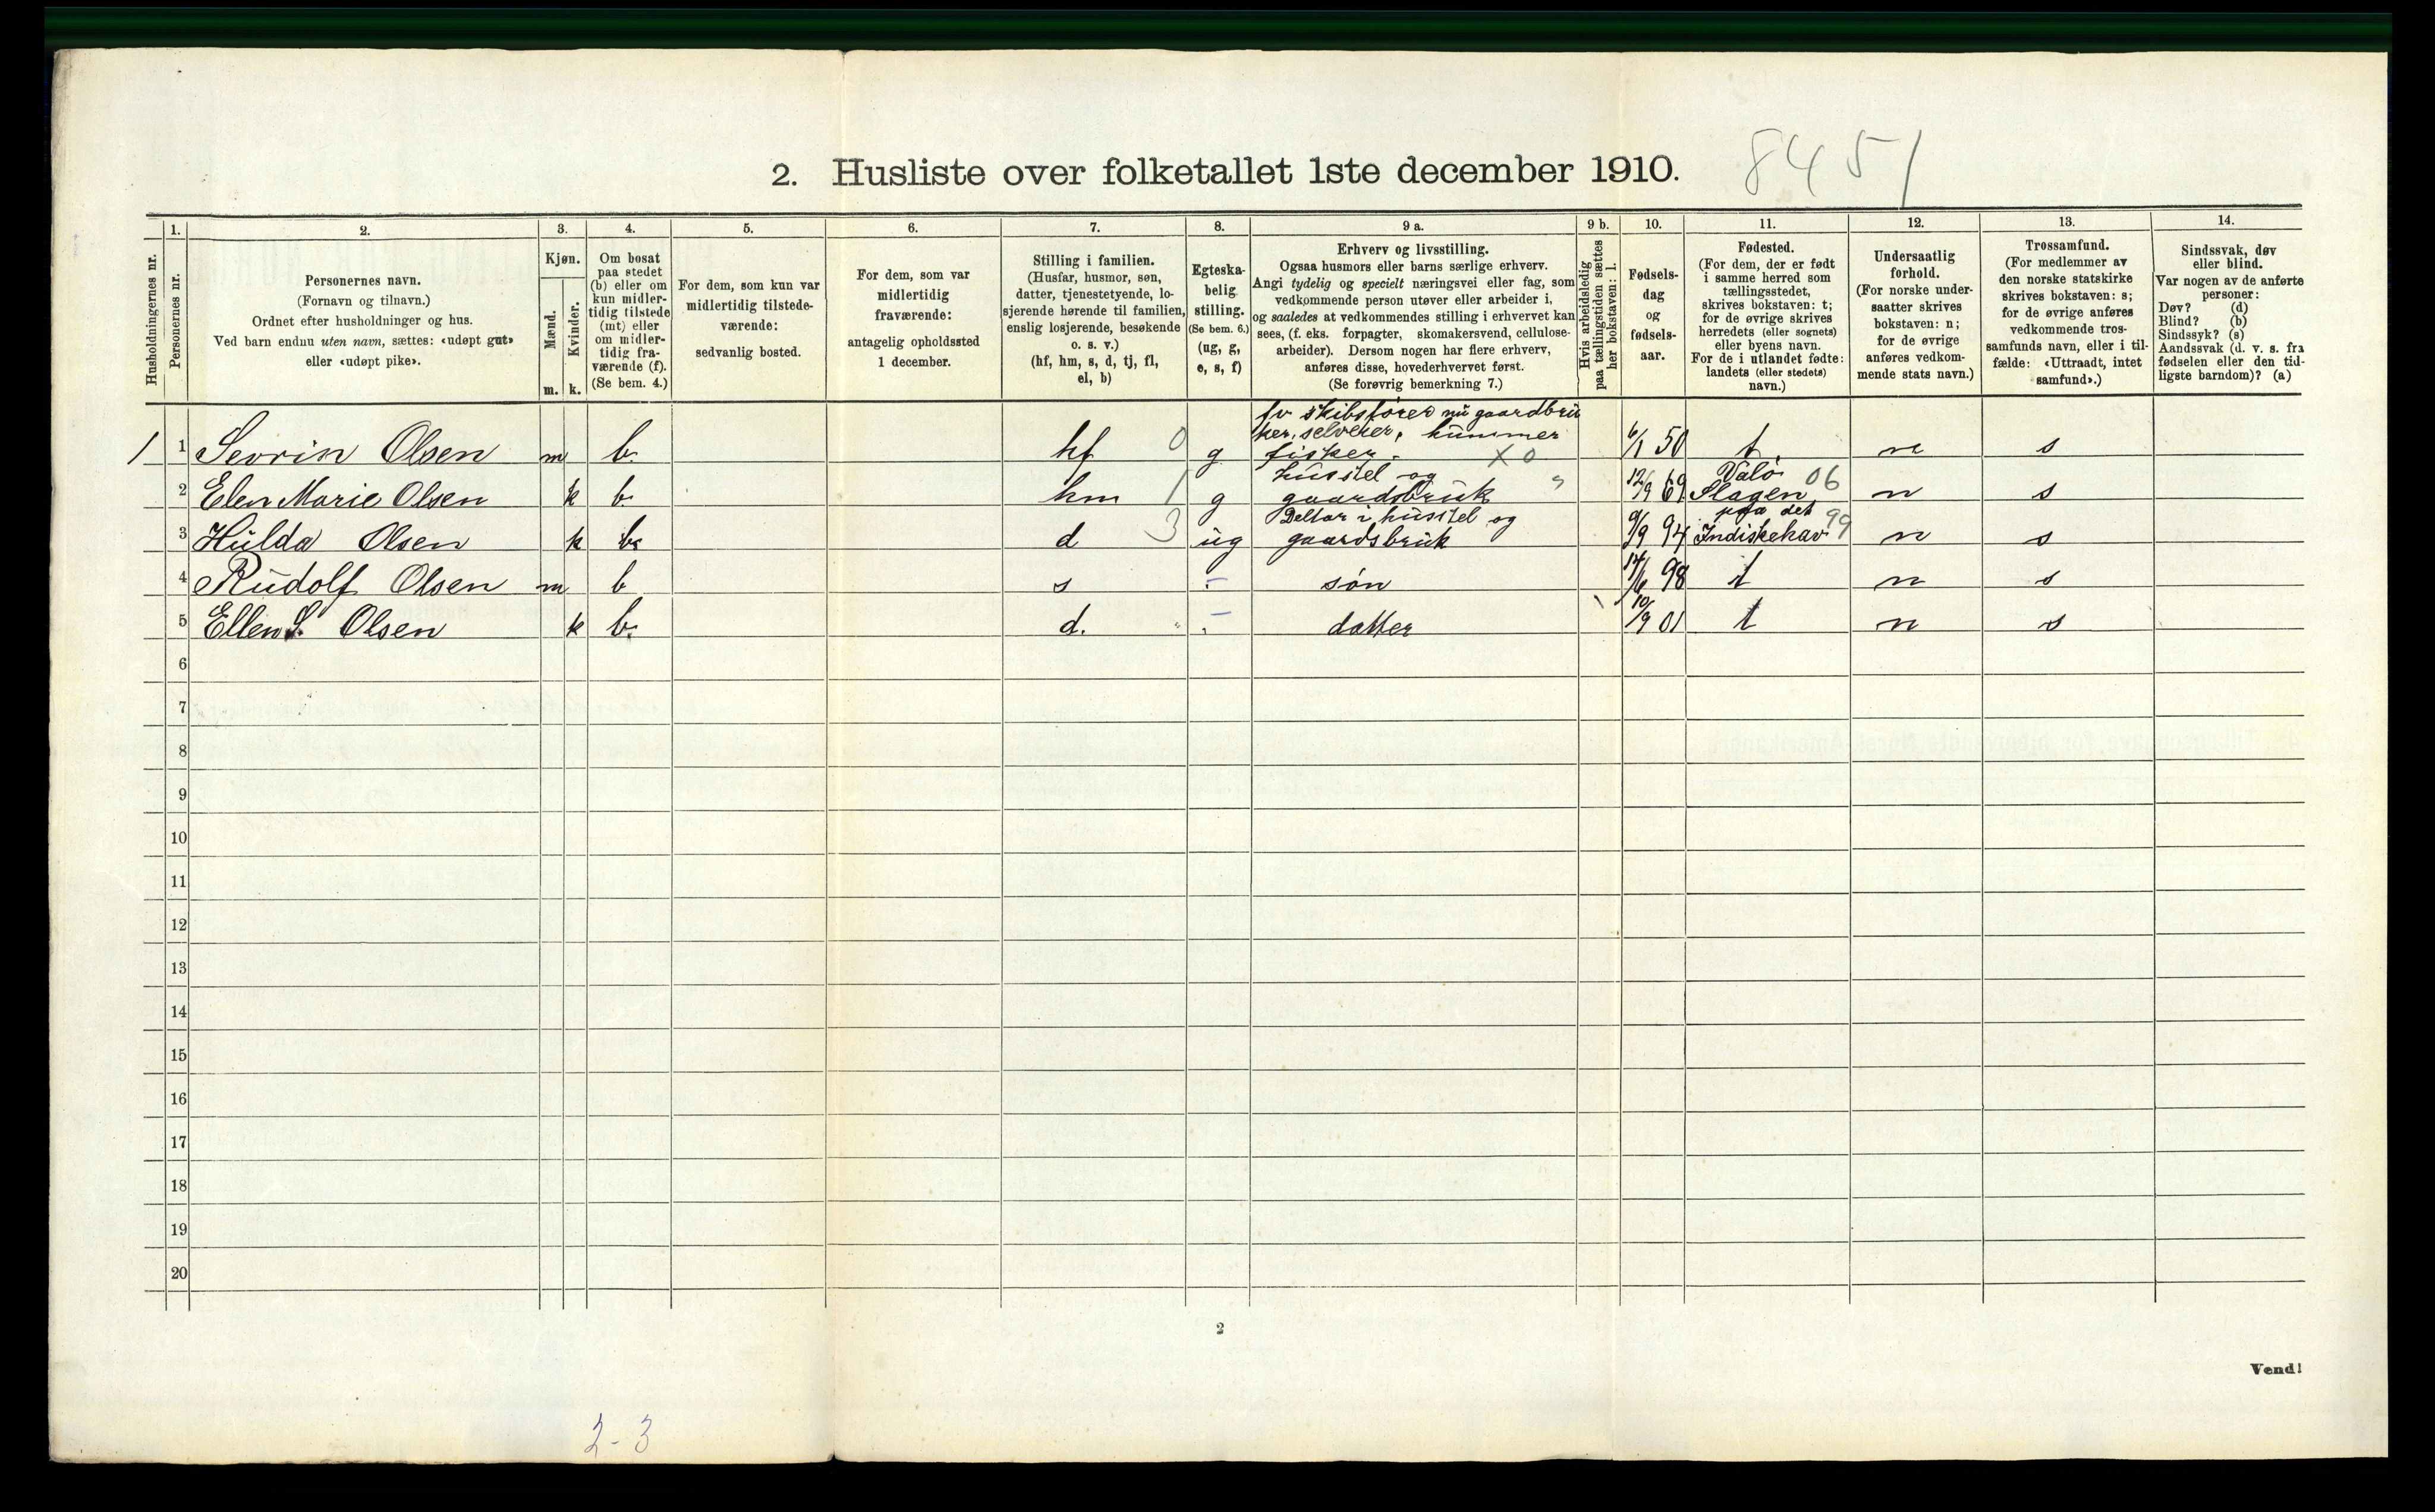 2. Husliste over folketallet 1ste december 1910. 8451
Husholdningernes nr.
1.
Personernes nr.
2.
Personernes navn.
(Fornavn og tilnavn.)
Ordnet efter husholdninger og hus.
Ved barn endnu uten navn, sættes: «udøpt gut»
eller «udøpt pike».
3.
Kjøn.
Mænd.
Kvinder.
m. k.
4.
Om bosat
paa stedet
(b) eller om
kun midler-
tidig tilstede
(mt) eller
om midler-
tidig fra-
værende (f).
(Se bem. 4.)
5.
For dem, som kun var
midlertidig tilstede-
værende:
sedvanlig bosted.
6.
For dem, som var
midlertidig
fraværende:
antagelig opholdssted
1 december.
7.
Stilling i familien.
(Husfar, husmor, søn,
datter, tjenestetyende, lo-
sjerende hørende til familien,
enslig losjerende, besøkende
o. s. v.)
(hf, hm, s, d, tj, fl,
el, b)
8.
Egteska-
belig
stilling.
(Se bem. 6.)
(ug, g,
e, s, f)
9 a.
Erhverv og livsstilling.
Ogsaa husmors eller barns særlige erhverv.
Angi tydelig og specielt næringsvei eller fag, som
vedkommende person utøver eller arbeider i,
og saaledes at vedkommendes stilling i erhvervet kan
sees, (f. eks. forpagter, skomakersvend, cellulose-
arbeider). Dersom nogen har flere erhverv,
anføres disse, hovederhvervet først.
(Se forøvrig bemerkning 7.)
9 b.
Hvis arbeidsledig
paa tællingstiden sættes
her bokstaven: l.
10.
Fødsels-
dag
og
fødsels-
aar.
11.
Fødested.
(For dem, der er født
i samme herred som
tællingsstedet,
skrives bokstaven: t;
for de øvrige skrives
herredets (eller sognets)
eller byens navn.
For de i utlandet fødte:
landets (eller stedets)
navn.)
12.
Undersaatlig
forhold.
(For norske under-
saatter skrives
bokstaven: n;
for de øvrige
anføres vedkom-
mende stats navn.)
13.
Trossamfund.
(For medlemmer av
den norske statskirke
skrives bokstaven: s;
for de øvrige anføres
vedkommende tros-
samfunds navn, eller i til-
fælde: «Uttraadt, intet
samfund».)
14.
Sindssvak, døv
eller blind.
Var nogen av de anførte
personer:
Døv? (d)
Blind? (b)
Sindssyk? (s)
Aandssvak (d. v. s. fra
fødselen eller den tid-
ligste barndom)? (a)
fv skibsfører nu gaardbru
ker, selveier, hummer
1 1 Sevrin Olsen m b. hf 0 g fisker. X0 6/1 50 t. n s
husstel og Valø 06
2 Elen Marie Olsen k b. hm 1 g gaardsbruk " 12/9 69 Slagen n s
Deltar i husstel og paa det 99
3 Hulda Olsen k b. d 3 ug gaardsbruk 9/9 94 Indiskehav n s
4 Rudolf Olsen m b s - søn 14/6 98 t n s
5 Ellen S. Olsen k b. d. " - datter 10/9 01 t n s
6
7
8
9
10
11
12
13
14
15
16
17
18
19
20
2
Vend!
2-3